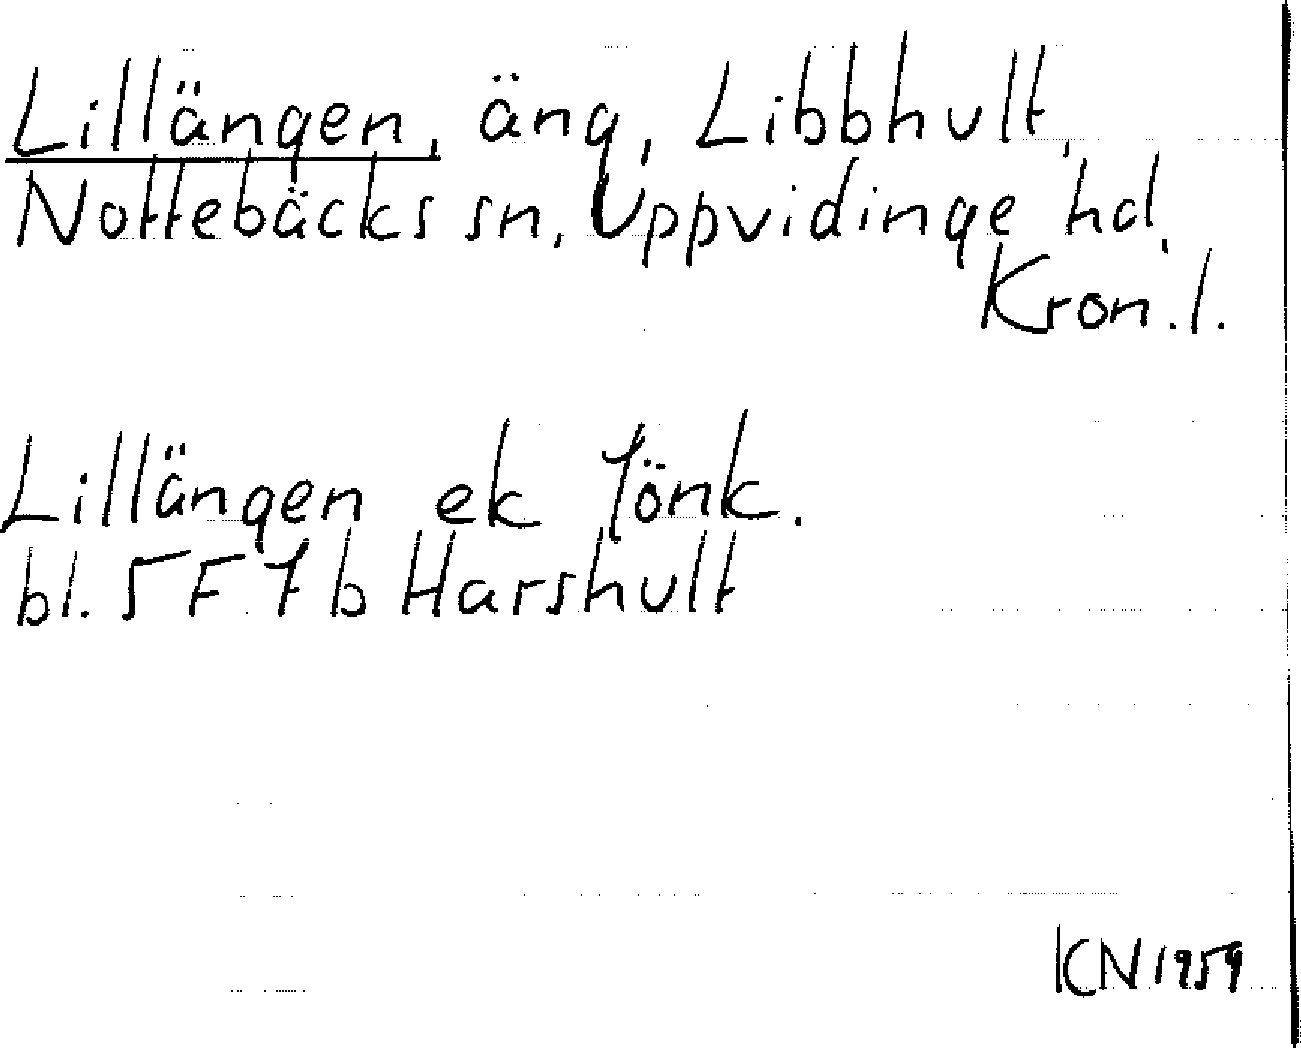 Lillängen, äng, Libbhult,
Nottebäcks sn, Uppvidinge hd,
Kron. l.
Lillängen ek Jönk.
bl. 5 F 7 b Harshult
KN 1959